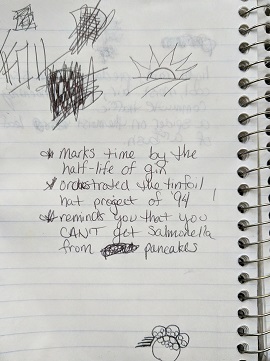 * marks time by the
half-life of gin
* orchestrated the tinfoil
hat project of '94
* reminds you that you
CAN'T get Salmonella
from pancakes